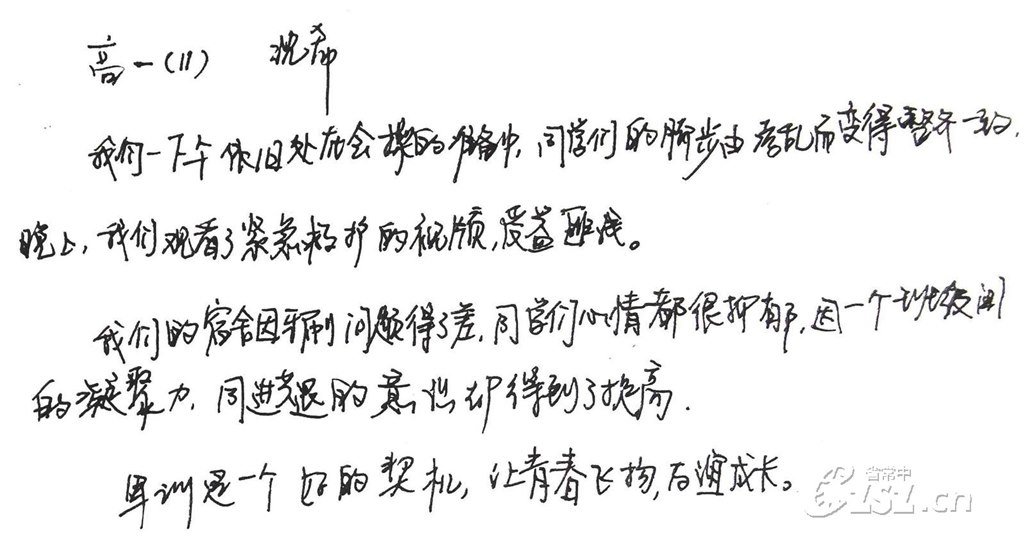 高一(11) 沈希
我们一下午依旧处在会操的准备中,同学们的脚步由凌乱而变得整齐一致,
晚上,我们观看了紧急救护的视频,受益匪浅。
我们的宿舍因牙刷问题得了差,同学们心情都很抑郁,因一个班级间
的凝聚力,同进退的意识却得到了提高.
军训是一个好的契机,让青春飞扬,与谊成长。
省常中
CSZ.cn